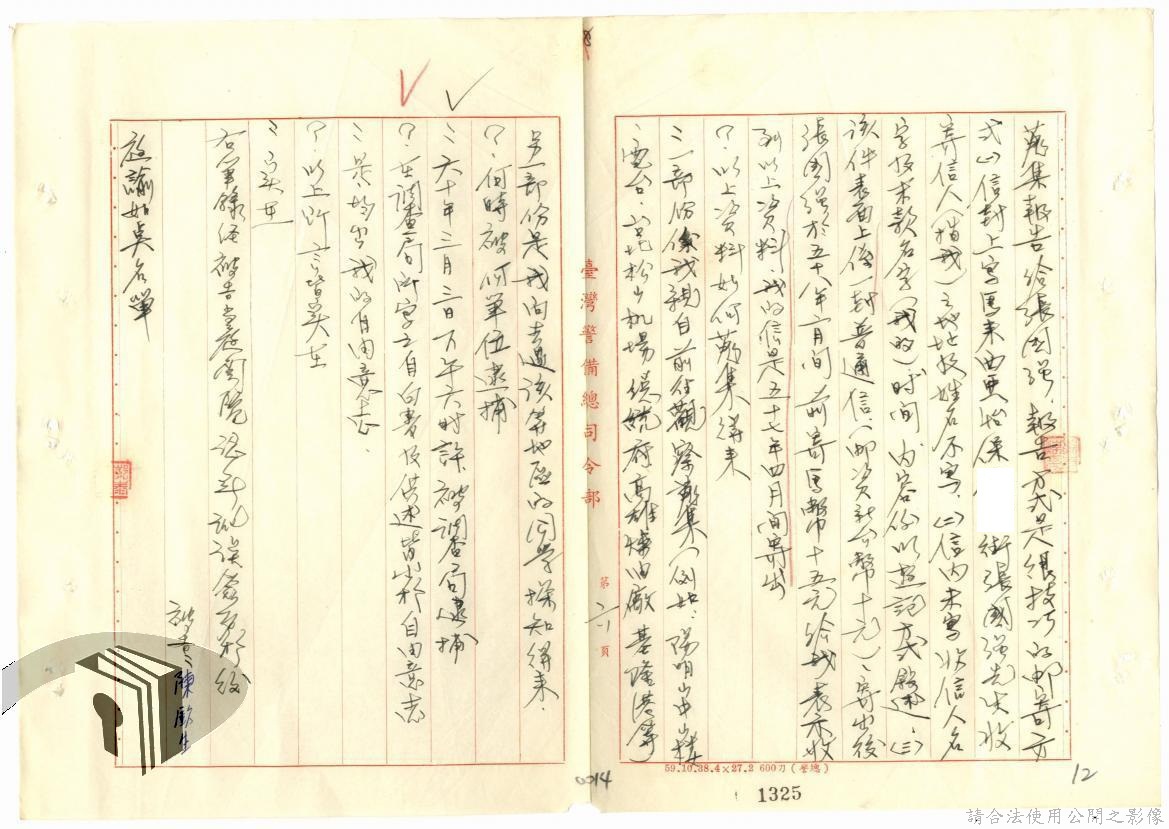 蒐集報告給張國强，報告方式是很技巧的郵寄方
式(一)信封上寫馬来西亜怡保 街張國强先生收
寄信人(指我)之地址姓名不寫，(二)信內未寫收信人名
字及末款名字(我的)时间、內容係以遊記方式敘述，(三)
該件表面上係封普通信，(郵資新台幣十元)，寄出後
張國强於五十八年二月间前寄馬幣十五元給我表示收
到以上資料，我的信是五十七年四月间寄出
？以上資料如何蒐集得来
：一部份係我親自前往觀察蒐集(例如：陽明山中山樓
電台、台北松山机場總統府高雄煉油廠基隆港等
第 六 頁
臺灣警備總司令部
另一部份是我向去過該等地區的同学探知得来．
？何時被何單位逮捕
：六十年三月三日下午六时許，被調查局逮捕
？在調查局所寫之自白書及供述皆出於自由意志
：是，均出我的自由意志．
？以上所言皆實在
：實在
右筆錄经被告當庭閱覽認无訛误簽名於後
被告：陳欽生
庭諭如点名單
59.10.38.4×27.2 600刀(警總)
1325
0014
12
請合法使用公開之影像